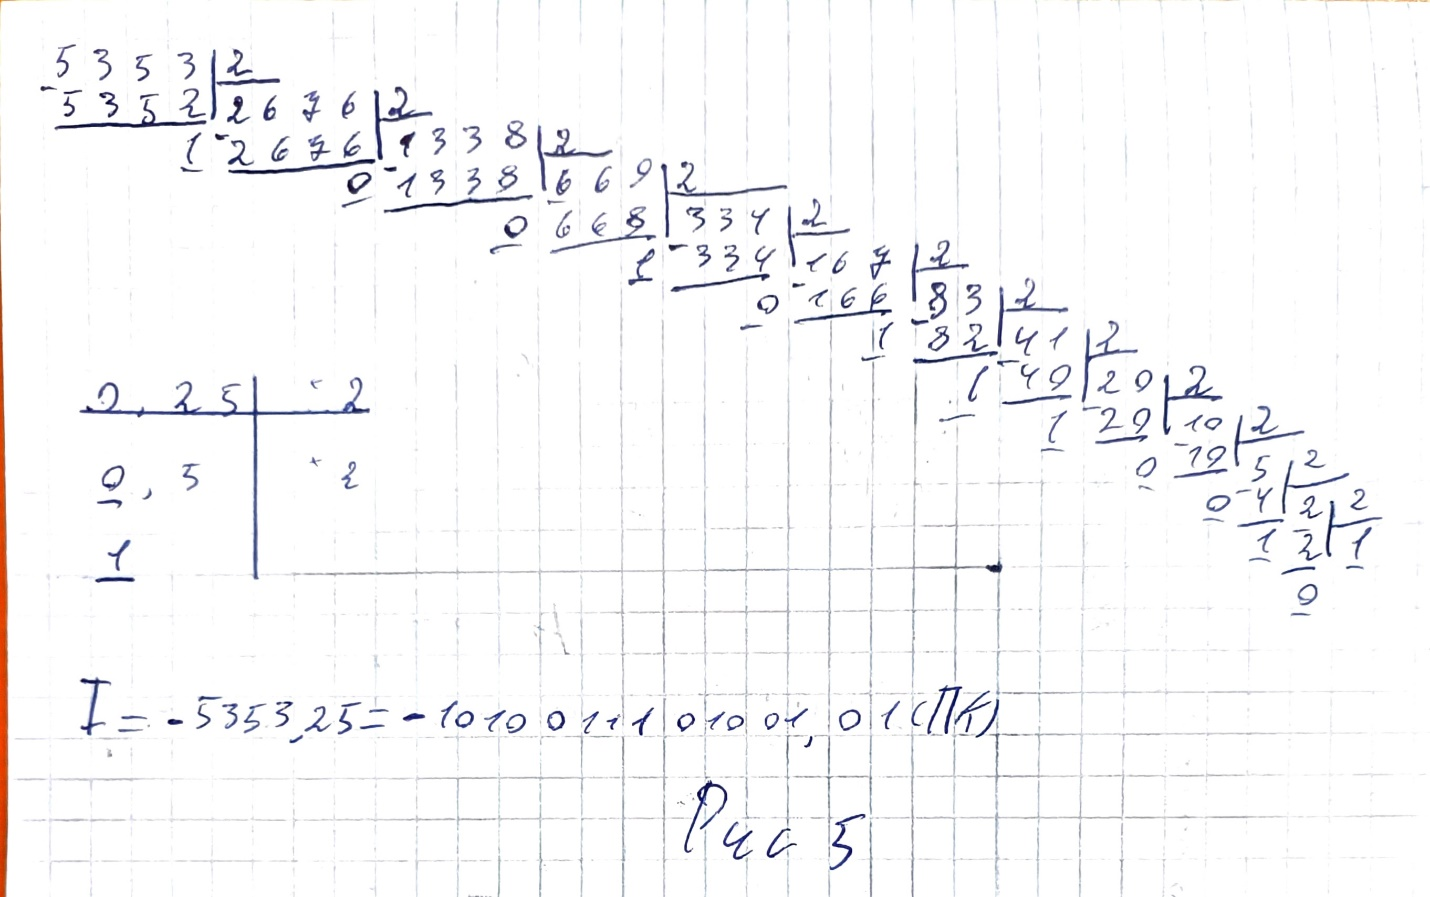 5353 | 2
-5352 | 2676 | 2
1 -2676 | 1338 | 2
0 -1338 | 669 | 2
0 -668 | 334 | 2
1 -334 | 167 | 2
0 -166 | 83 | 2
1 -82 | 41 | 2
1 -40 | 20 | 2
1 -20 | 10 | 2
0 -10 | 5 | 2
0 -4 | 2 | 2
1 2 | 1
0
0,25 | · 2
0,5 | · 2
1
I = -5353,25 = -1010011101001,01(ПК)
Рис 5